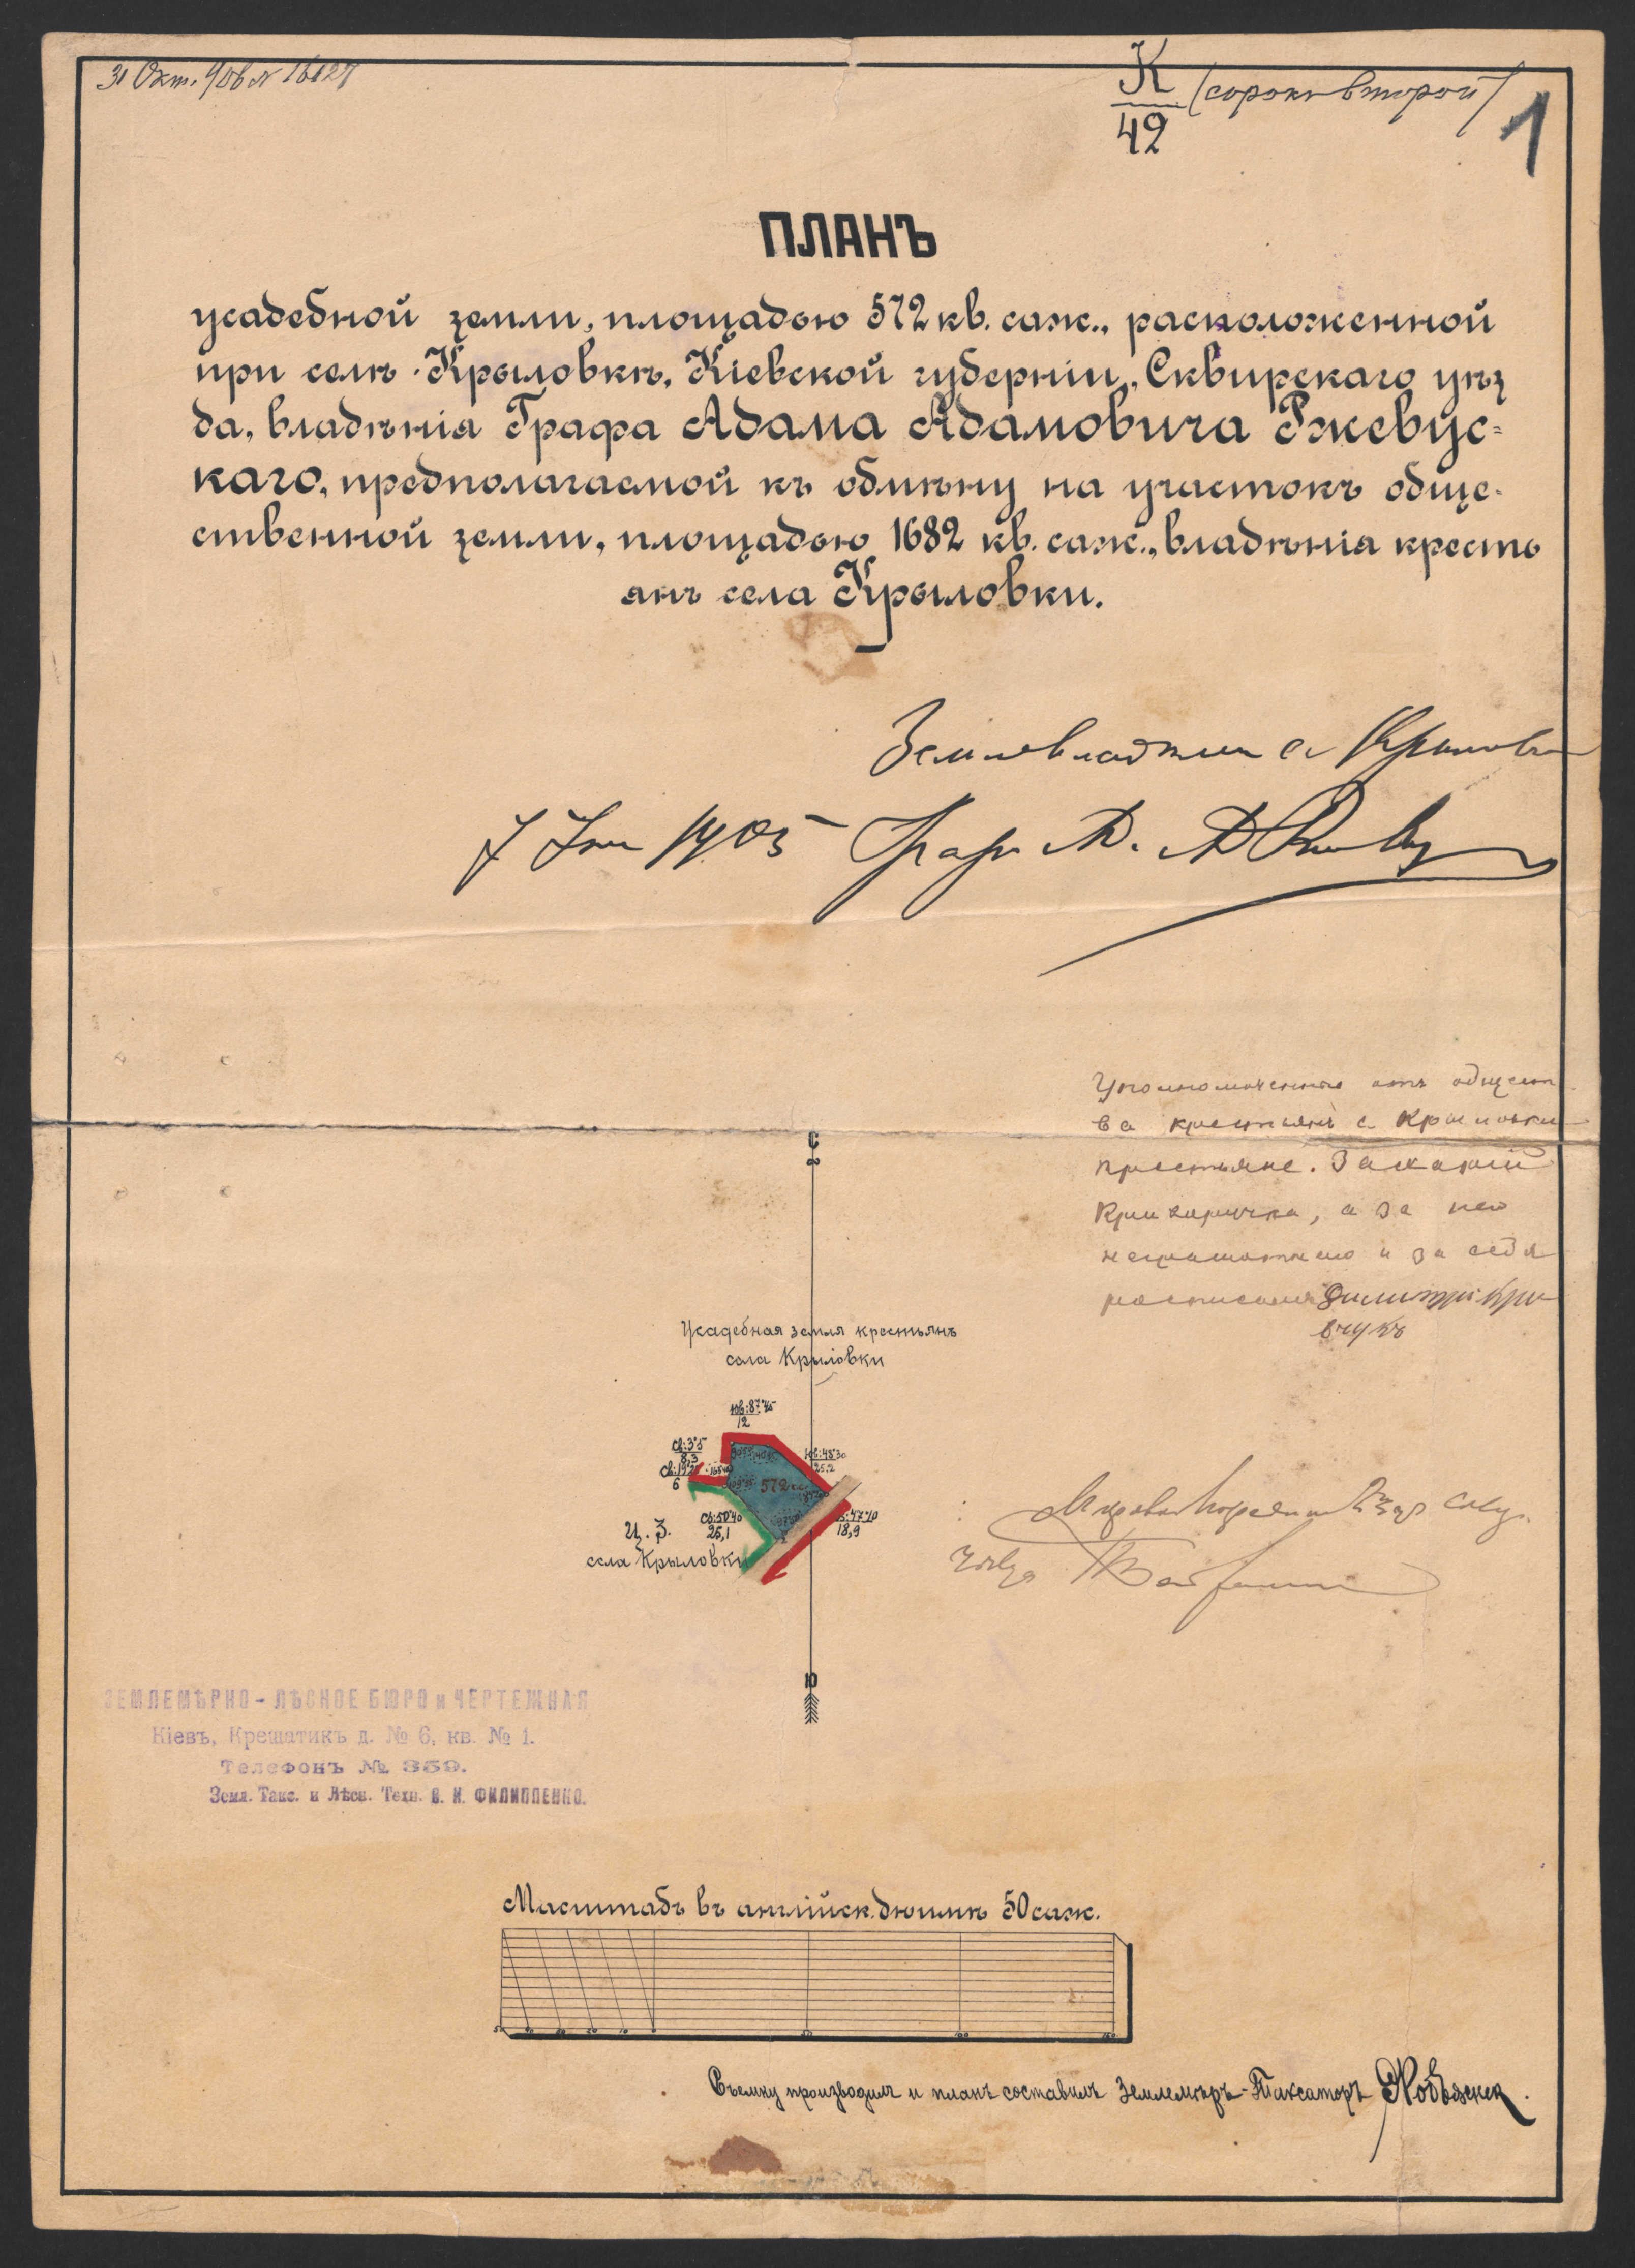 31 Окт. 906 № 16127
К
42
(сорокъ второй)
1
ПЛАНЪ
усадебной земли, площадью 572 кв. саж., расположенной
при селѣ Крыловкѣ, Кіевской губерніи, Сквирскаго уѣз
да, владѣнія Графа Адама Адамовича Ржевус=
каго, предполагаемой къ обмѣну на участокъ обще-
ственной земли, площадью 1682 кв. саж., владѣнія кресть
янъ села Крыловки.
Землевладѣлец с. Крыловки
7 1905 Графъ А. А.
Уполномоченные отъ общест
ва крестьянъ с. Крыловки
крестьяне.
а за него
неграмотнаго и за себя
росписался Димитрій Кри
вчукъ
С
Усадебная земля крестьянъ
села Крыловки
ЮВ:87°45
12
СВ:3°5
8,3
ЮВ:48°30
25.2
6
572 кс.
СЗ:50°40
25,1
47°10
18,9
Ц. З.
села Крыловки
Ю
ЗЕМЛЕМѢРНО-ЛѢСНОЕ БЮРО и ЧЕРТЕЖНАЯ
Кіевъ, Крещатикъ д. № 6, кв. № 1.
Телефонъ № 359.
Земл. Такс. и Лѣсн. Техн. В. И. ФИЛИППЕНКО.
Масштабъ въ англійск. дюймѣ 50 саж.
50 40 30 20 10 0 50 100 150
Съемку производилъ и планъ составилъ Землемѣръ-Таксаторъ